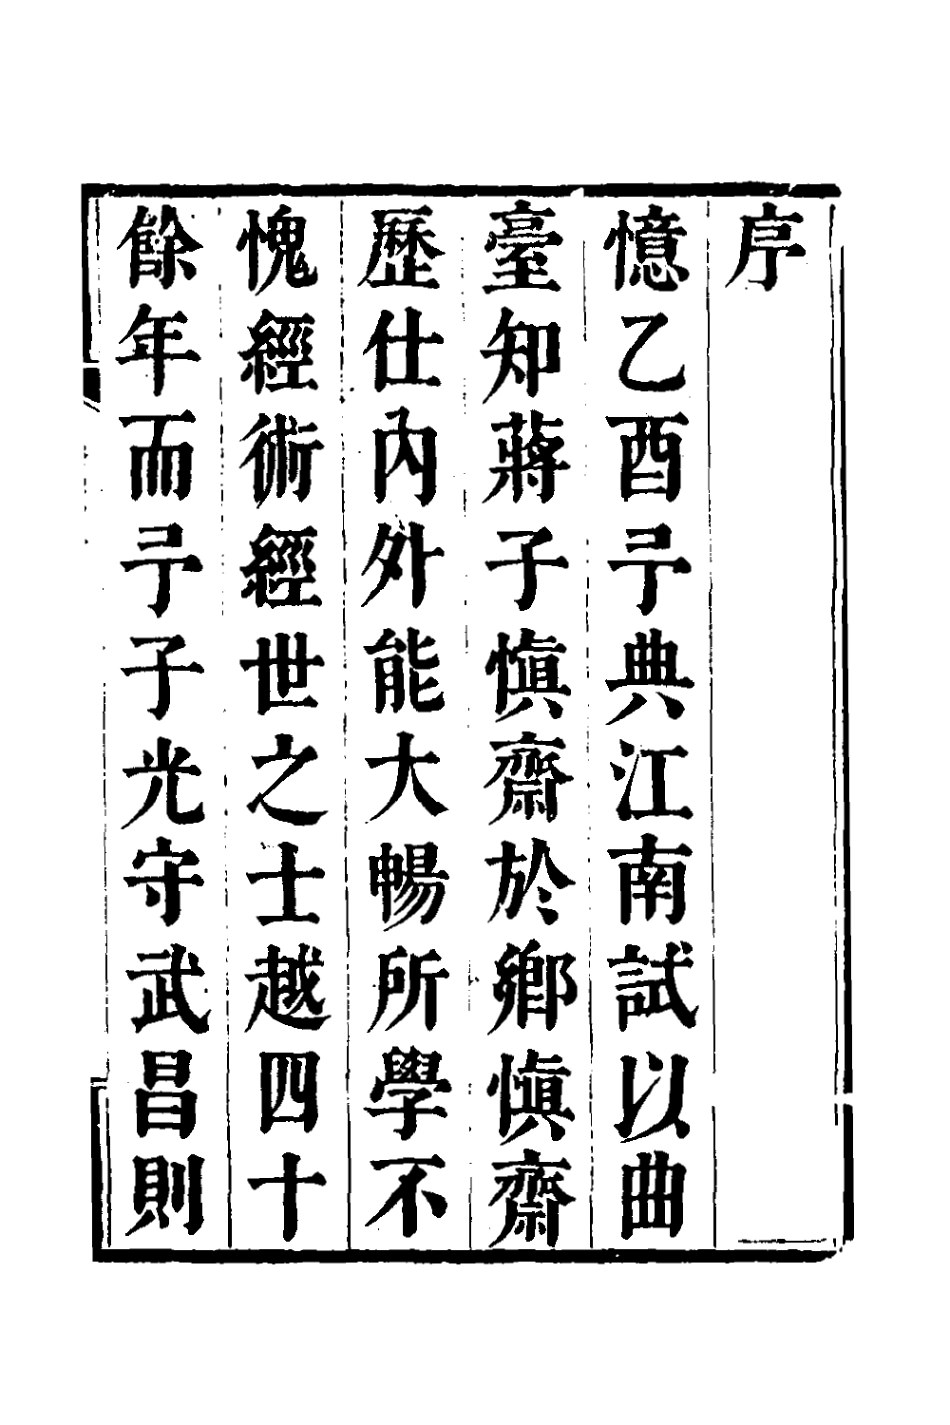 序
憶乙酉予典江南試以曲
臺知蔣子慎齋於鄉慎齋
歷仕內外能大暢所學不
愧經術經世之士越四十
餘年而予子光守武昌則